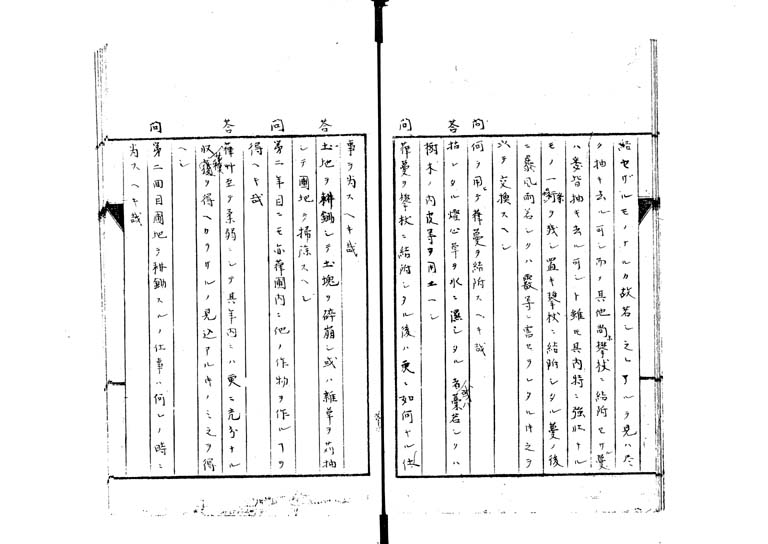 結セザルモノナルカ故若シ之レアルヲ見ハ尽
ク抽キ去ル可シ而ノ其他尚ホ攀杖ニ結附セサル蔓
ハ委皆抽キ去ル可シト雖トモ其内特ニ強壮ナル
モノ一條ヲ残シ置キ攀杖ニ結附シタル蔓ノ後
ニ暴風雨若シクハ霰等ニ害セラレタル時之ヲ
以テ交換スヘシ
問 何ヲ用ヒテ葎蔓ヲ結附スヘキ哉
答 枯レタル燈心草ヲ水ニ湿シタル者或ハ藁若シクハ
樹木ノ内皮等ヲ用ユヘシ
問 葎蔓ヲ攀杖ニ結附シタル後ハ更ニ如何ナル仕
事ヲ為スヘキ哉
答 土地ヲ耕鋤シテ土塊ヲ砕崩シ或ハ雑草ヲ芟抽
シテ圃地ヲ掃除スヘシ
問 第二年目ニモ亦葎圃内ニ他ノ作物ヲ作ルヿヲ
得ヘキ哉
答 葎叶至テ柔弱ニシテ其年内ニハ更ニ充分ナル
収獲ヲ得ヘカラサルノ見込アルキノミ之ヲ得
ヘシ
問 第二回目圃地ヲ耕鋤スルノ仕事ハ何レノ時ニ
為スヘキ哉